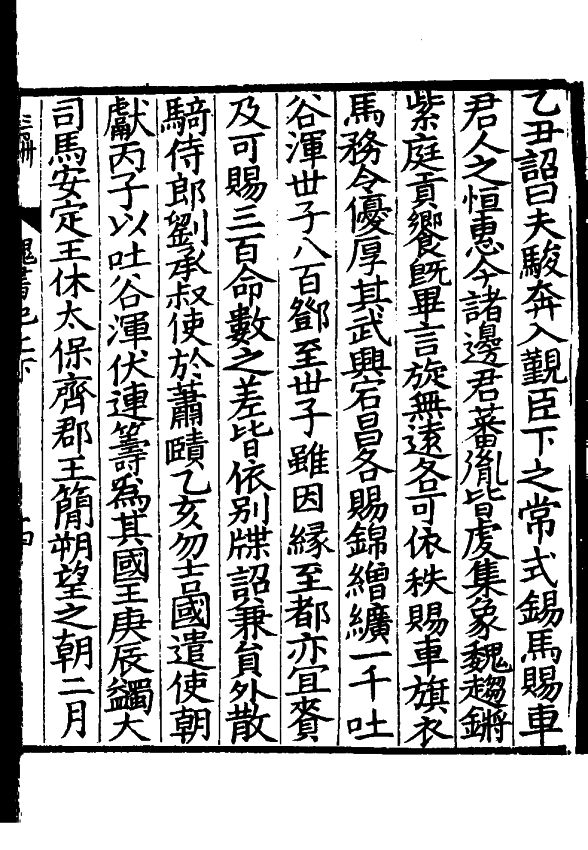 乙丑詔曰夫駿奔入覲臣下之常式錫馬賜車
君人之恒惠今諸邊君蕃胤皆虔集象魏趨鏘
紫庭貢饗旣畢言旋無遠各可依秩賜車旗衣
馬務令優厚其武興宕昌各賜錦繒纊一千吐
谷渾世子八百鄧至世子雖因緣至都亦宜賚
及可賜三百命數之差皆依别牒詔兼貟外散
騎侍郎劉承叔使於蕭賾乙亥勿吉國遣使朝
獻丙子以吐谷渾伏連籌爲其國王庚辰蠲大
司馬安定王休太保齊郡王簡朔望之朝二月
魏書紀七下